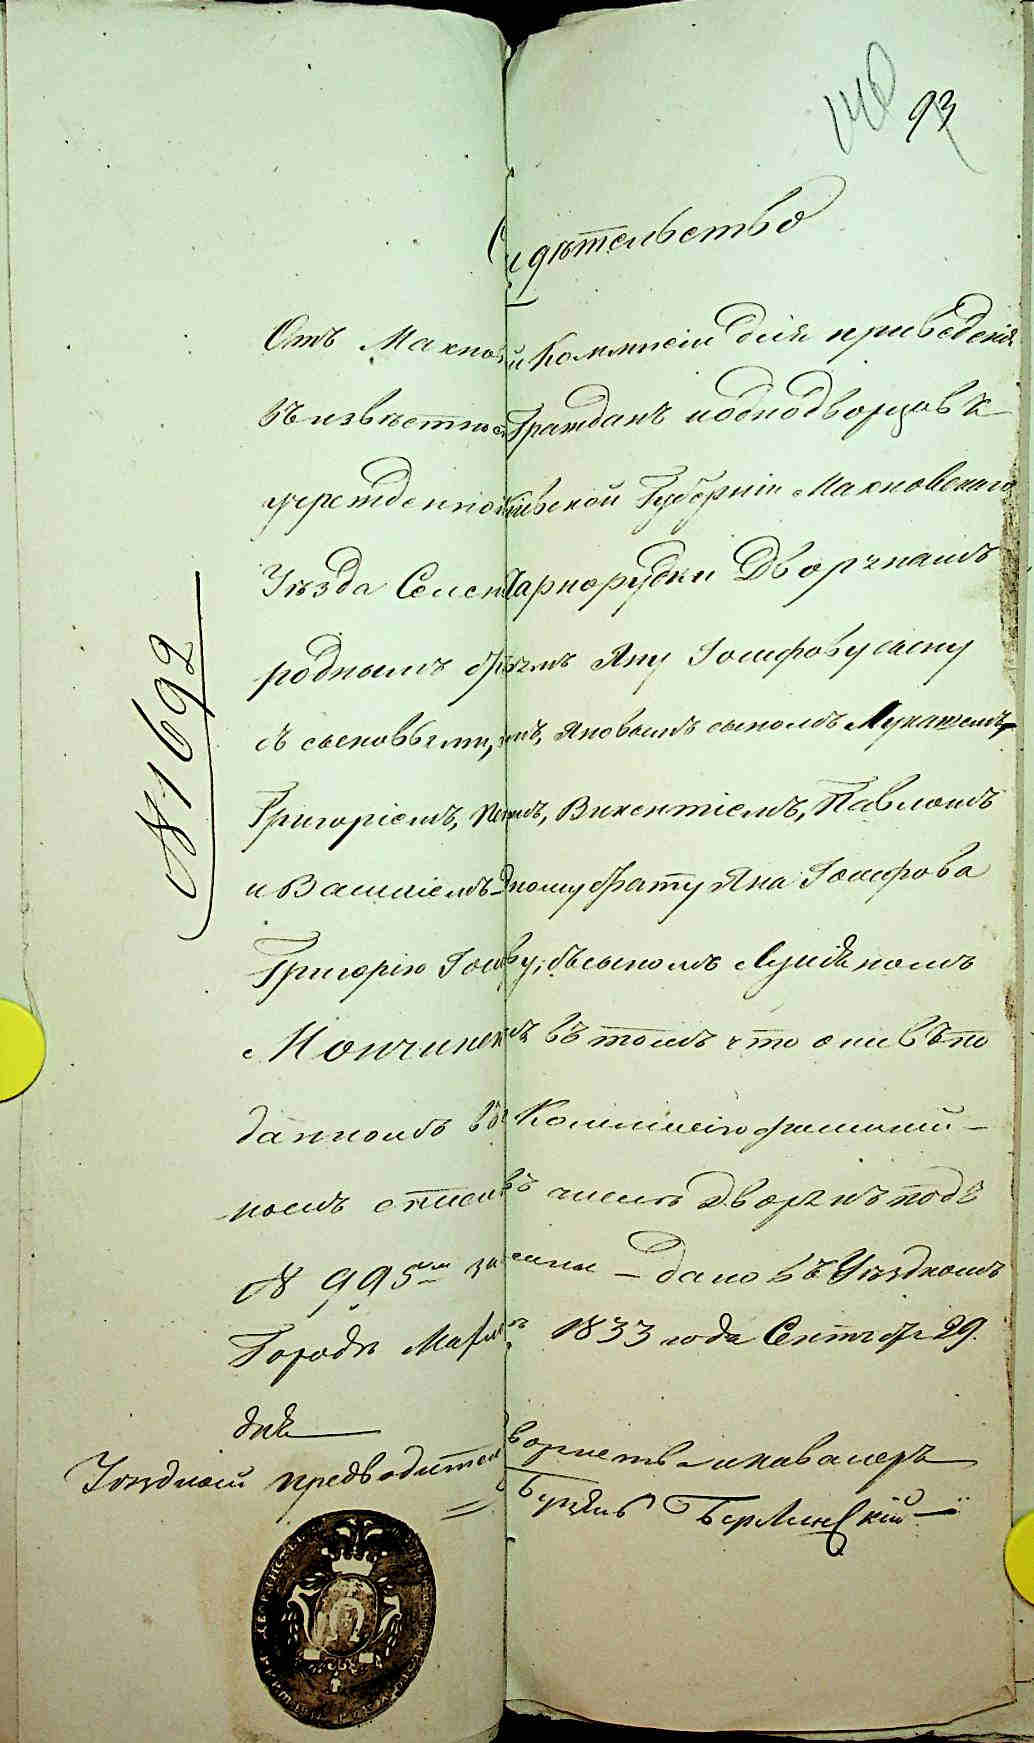 93
идѣтельство
Отъ Махно й Коммисіи для приведенія
въ извѣстнос Гражданъ и однодворцовъ
учрежденно Кіевской Губерніи Махновскаго
Уѣзда Селен Чарнорудки Дворянамъ
роднымъ бр тьямъ Яну Іосифову сыну
съ сыновьями, мъ, Яновымъ сыномъ Лукашемъ,
Григоріемъ, Пе мъ, Викентіемъ, Павломъ
и Василіемъ дному брату Яна Іосифова
Григорію Іоси ву, съ сыномъ Луціаномъ
Мончинск мъ въ томъ что они въ по
данномъ въ Коммисію фамилій-
номъ списк въ числѣ Дворянъ подъ
№ 995 за саны – дано въ Уѣздномъ
Городѣ Махн 1833 года Сентября 29
дня
Уѣздный предводител ворянства и кавалеръ
Берлинскій
№ 1692